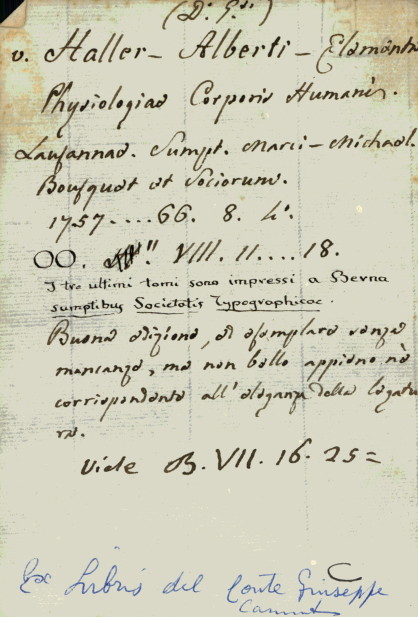 (D. G.)
v. Haller - Alberti - Elementa
Physiologiae Corporis Humani.
Lausannae. Sumpt. Marci-Michael.
Bousquet et Sociorum.
1757....66. 8. 4°.
OO. VIII. 11....18.
I tre ultimi tomi sono impressi a Berna
sumptibus Societatis Typographicae.
Buona edizione, ed esemplare senza
mancanze, ma non bello appieno nè
corrispondente all'eleganza della legatu
ra.
Vide B. VII. 16. 25=
C
Ex Libris del Conte Giuseppe